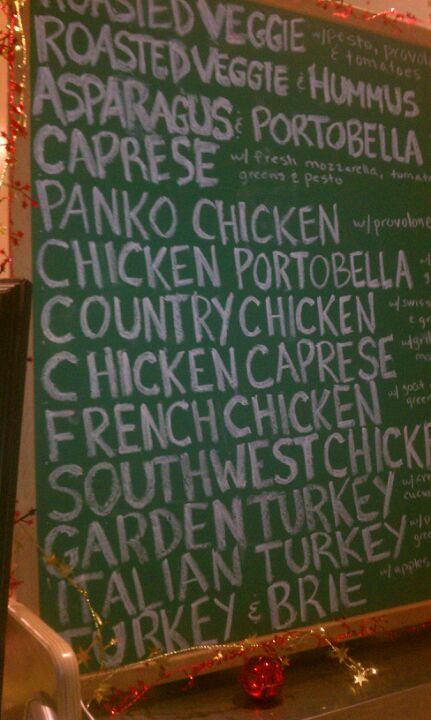 ROASTED VEGGIE w/pesto,
& tomatoes
ROASTED VEGGIE & HUMMUS
ASPARAGUS & PORTOBELLA
CAPRESE w/ fresh mozzarella,
greens & pesto
PANKO CHICKEN w/provolone
CHICKEN PORTOBELLA
COUNTRY CHICKEN
CHICKEN CAPRESE
FRENCH CHICKEN w/ goat
SOUTHWEST CHICKE
GARDEN TURKEY
ITALIAN TURKEY
TURKEY & BRIE w/ apples